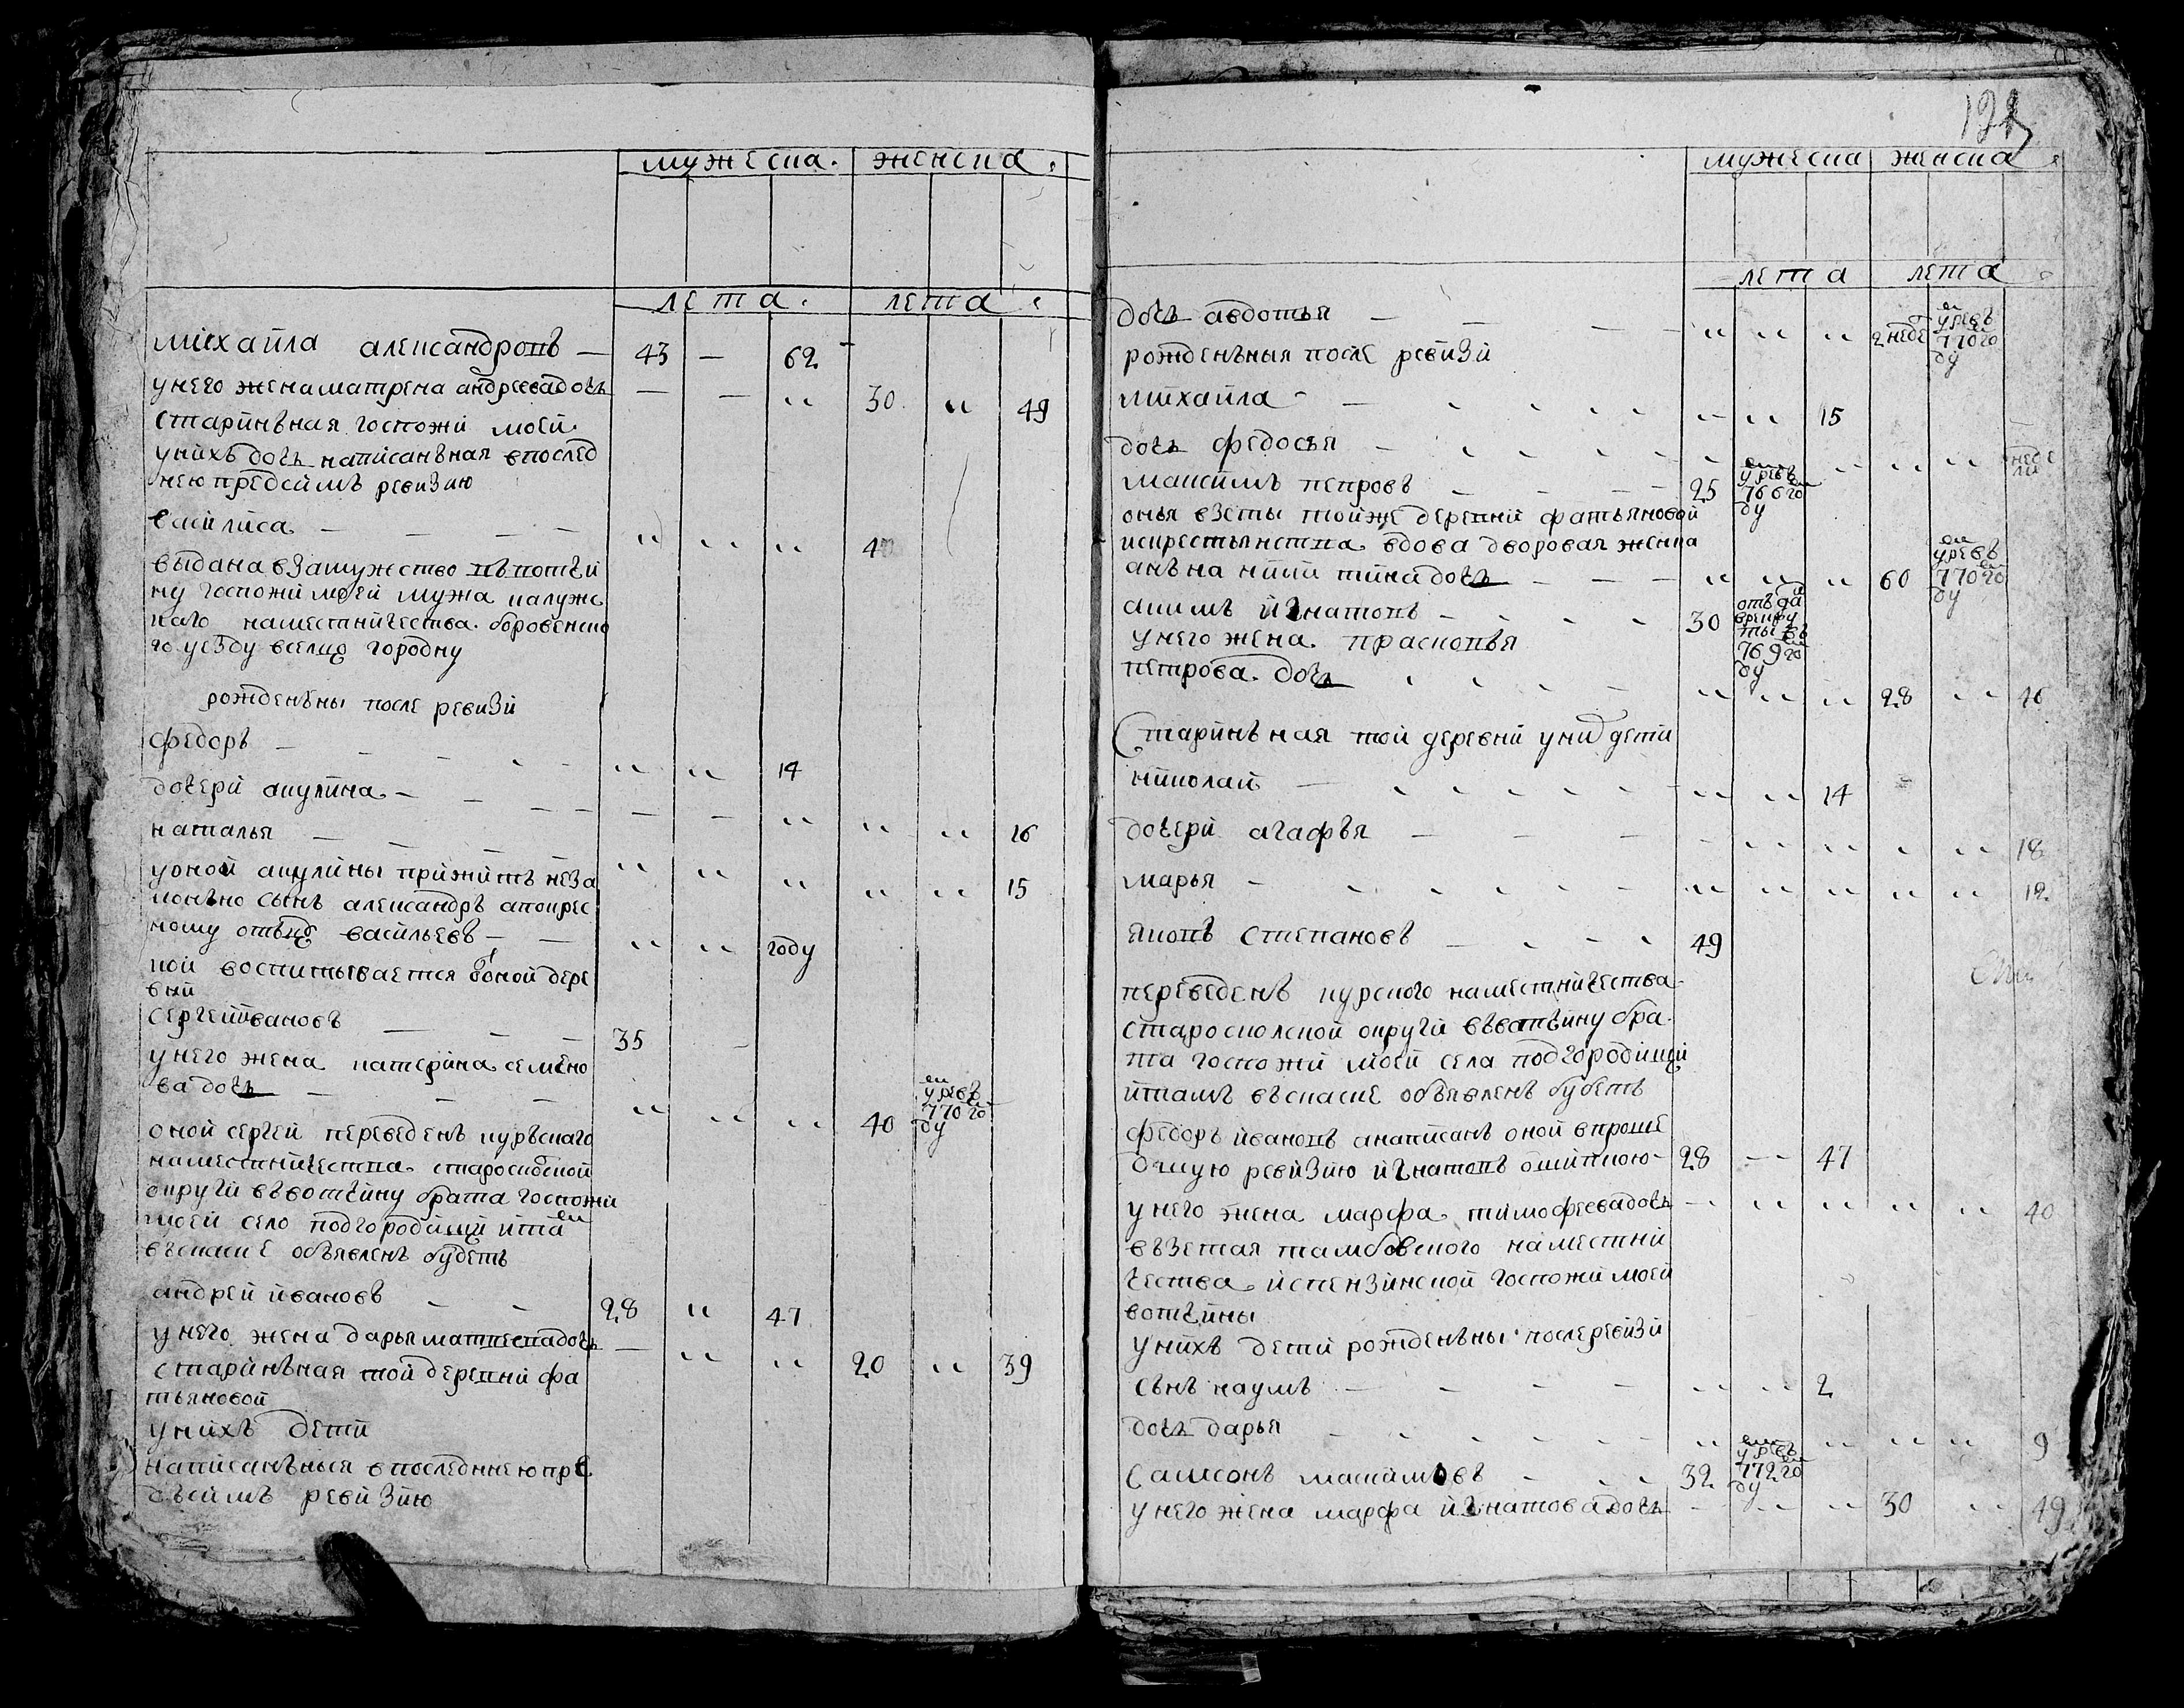 мужеска. женска.
лета. лета.
михаила александровъ — 43 — 62
унего жена матрена андреевадочь — — " 30 " 49
стариньная госпожи моеи
унихъ дочь написаньная впослед
нею предсимъ ревизию
василиса — — — — " " " 40
выдана взамужество въвотчи
ну госпожи моеи мужа калужс
каго наместничества боровенско
го уезду вселцо городну
рожденьны после ревизи
федоръ — — — " " 14
дочери акулина — — — — — — " " " 16
наталья — — — — " " " " " 15
уоной акулины прижитъ неза
коньно сынъ александръ апокрес
ному отьцу васильевъ — — " " году
кой воспитывается воной дере
вни
сергеи ивановъ — — — 35 —
унего жена катерина семено
ва дочь — — — " " " 40 умре въ 770 году
оной сергеи переведенъ курьскаго
наместничества староскольской
округи въвотчину брата госпожи
моеи село подгородищи итамъ
въскаске объявленъ будеть
андреи ивановъ — — 28 " 47
унего жена дарья матвеевадочь — " " 20 " 39
стариньная той деревни фа
тьяновой
унихъ дети
написаньныя впоследнею пре
дъсимъ ревизию
мужеска женска
лета лета
дочь авдотья — — — — " " " 2 неде умре въ 770 году
рожденьныя после ревизи
михаила — " " 15
дочь федосья — " " " " неде ли
максимъ петровъ — — — — 25 умре въ 766 году
онья взеты тойже деревни фатьяновой
искрестьянства вдова дворовая женка
анъна никитина дочь — — — " " " 60 умре въ 770 году
акимъ игнатовъ — 30 отъдан врекру ты въ 769 году
унего жена прасковья
петрова дочь " " " 28 " 46
стариньная той деревни уних дети
николаи — " " 14
дочери агафья — — — " " " " " 18
марья — " " " " " 12
яковъ степановъ — 49
переведенъ курского наместничества
староскольской округи въвотьчину бра
та госпожи моеи села подгородищи
итамъ въскаске объявленъ будеть
федоръ ивановъ анаписанъ оной впроше
дшую ревизию игнатовъ ошипкою 28 — 47
унего жена марфа тимофеевадочь — " " " " 40
възетая тамбовского наместни
чества испензинской госпожи моеи
вотчины
унихъ дети рожденьны послеревизи
сынъ наумъ — — — " " 2
дочь дарья — " " " " 9
самсонъ максимовъ — 32 умре въ 772 году
унего жена марфа игнатовадочь — " " 30 " 49